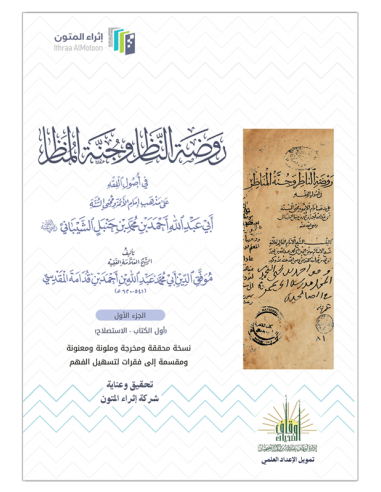 إثراء المتون
Ithraa AlMotoon
روضة الناظر وجنة المناظر
في أصول الفقه
على مذهب إمام الأئمة ومحيي السنة
أبي عبد الله أحمد بن محمد بن حنبل الشيباني
تأليف
الشيخ العلامة الفقيه
موفق الدين أبي محمد عبد الله بن أحمد بن قدامة المقدسي
(٥٤١-٦٢٠ هـ)
الجزء الأول
(أول الكتاب - الاستصلاح)
نسخة محققة ومخرجة وملونة ومعنونة
ومقسمة إلى فقرات لتسهيل الفهم
تحقيق وعناية
شركة إثراء المتون
روضة الناظر وجنة المناظر
٨١
أوقاف
الضحيان
تمويل الإعداد العلمي